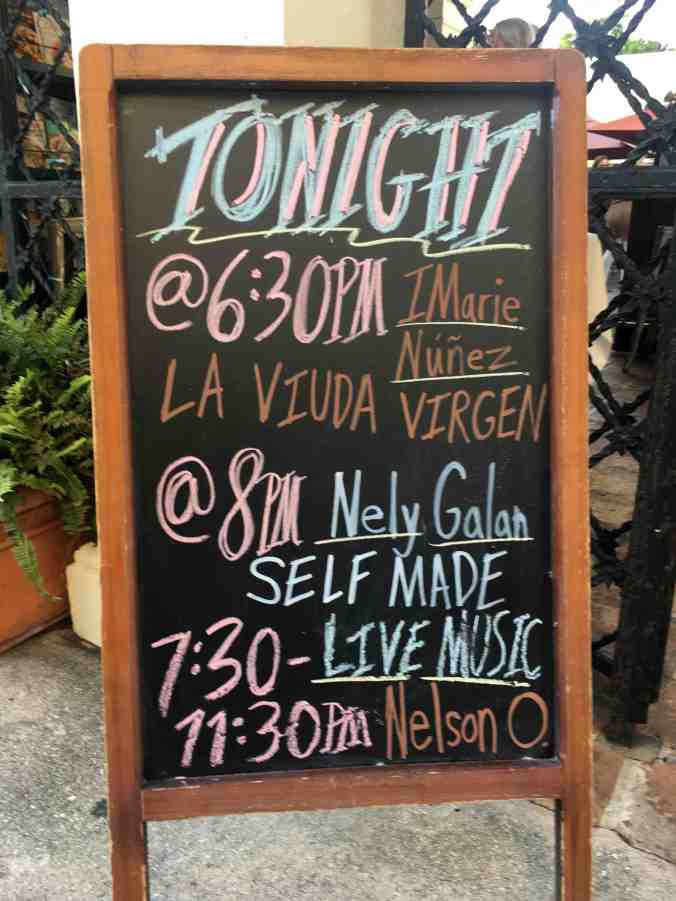 TONIGHT
@6:30PM IMarie
Núñez
LA VIUDA VIRGEN
@8PM Nely Galan
SELF MADE
7:30- LIVE MUSIC
11:30PM Nelson O.